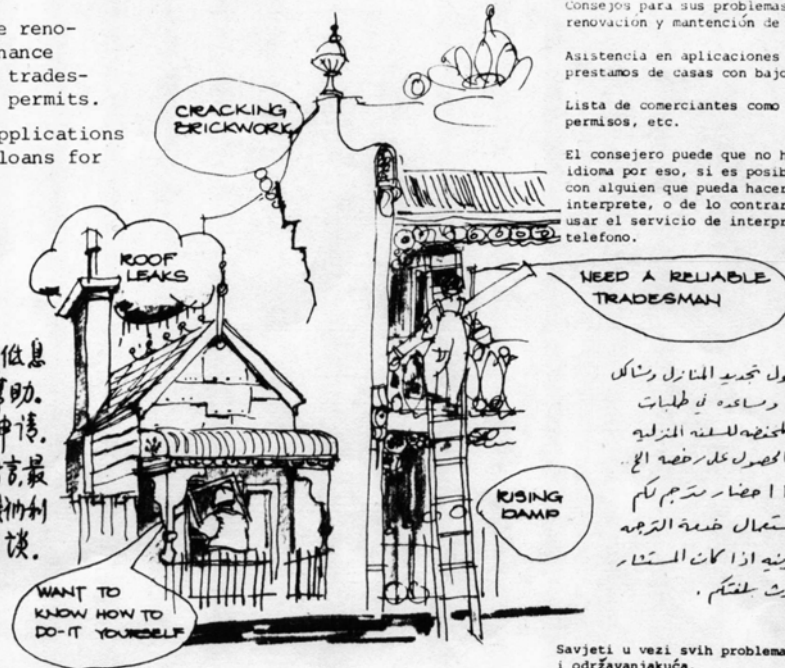 e reno-
nance
trades-
permits.
pplications
loans for
CRACKING
BRICKWORK
ROOF
LEAKS
低息
助.
申请.
言,最
利
谈.
WANT TO
KNOW HOW TO
DO-IT YOURSELF
Consejos para sus problemas
renovación y mantención de
Asistencia en aplicaciones
prestamos de casas con bajo
Lista de comerciantes como
permisos, etc.
El consejero puede que no h
idioma por eso, si es posib
con alguien que pueda hacer
interprete, o de lo contrar
usar el servicio de interpr
telefono.
NEED A RELIABLE
TRADESMAN
ول تجديد المنازل وشاكل
وساعده في طلبات
المنزليه
الحصول على رخصه الخ
ا احضار مترجم لكم
ستعمال خدمة الترجمه
اذا كان المستشار
بلغتكم.
RISING
DAMP
Savjeti u vezi svih problema
i održavanjakuća.